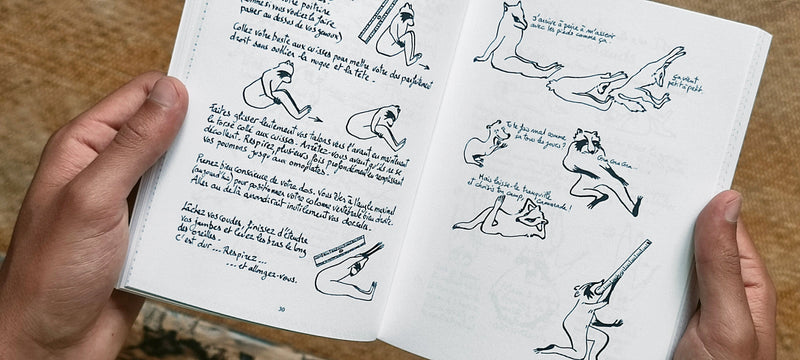 poitrine
si vous voulez la faire
passer au dessus de vos genoux)
Collez votre buste aux cuisses pour mettre votre dos parfaitement
droit sans oublier la nuque et la tête.
Faites glisser lentement vos talons vers l'avant en maintenant
le torse collé aux cuisses. Arrêtez-vous avant qu'elles ne se
décollent. Respirez plusieurs fois profondément en remplissant
vos poumons jusqu'aux omoplates.
Prenez bien conscience de votre dos. Vous êtes à l'angle maximal
(aujourd'hui) pour positionner votre colonne vertébrale bien droite.
Aller au delà arrondirait inutilement vos dorsales.
Lâchez vos coudes, finissez d'étendre
vos jambes et levez les bras le long
des oreilles.
c'est dur... Respirez...
...et allongez-vous.
30
J'arrive à peine à m'asseoir
avec les pieds comme ça.
ça vient
petit à petit.
Te te fais mal comme
ça tous les jours ?
Gna Gna Gna...
Mais laisse-le tranquille
et choisis ton camp, camarade !